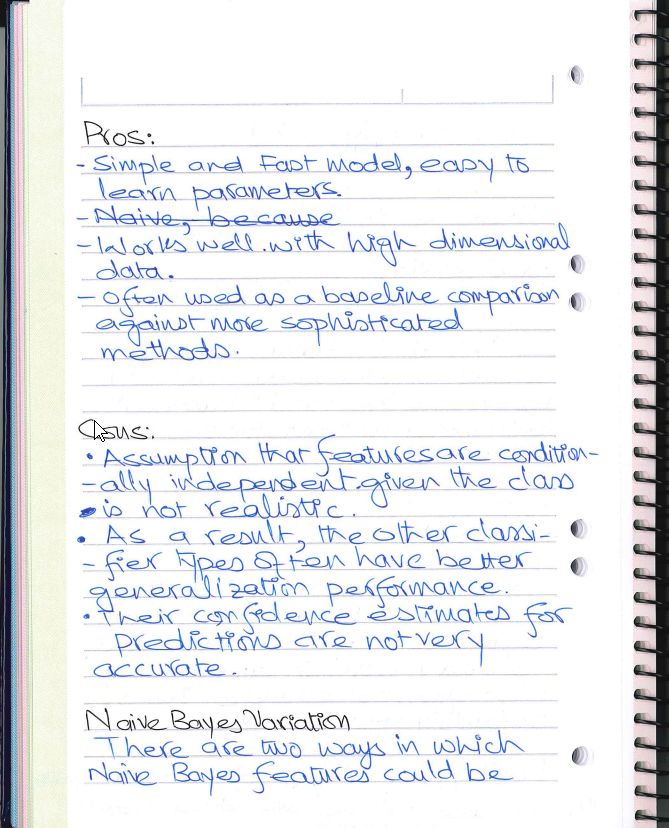 Pros:
- Simple and Fast model, easy to
learn parameters.
- Naive, because
- Works well with high dimensional
data.
- Often used as a baseline comparison
against more sophisticated
methods.
Cons:
• Assumption that features are condition-
-ally independent given the class
is not realistic.
• As a result, the other classi-
- fier types often have better
generalization performance.
• Their confidence estimates for
predictions are not very
accurate.
Naive Bayes Variation
There are two ways in which
Naive Bayes features could be